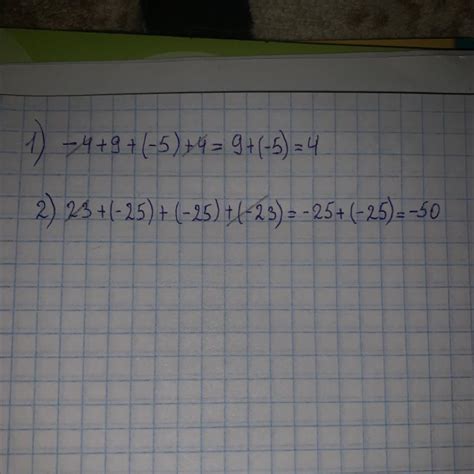 1) -4+9+(-5)+4=9+(-5)=4
2) 23+(-25)+(-25)+(-23)=-25+(-25)=-50